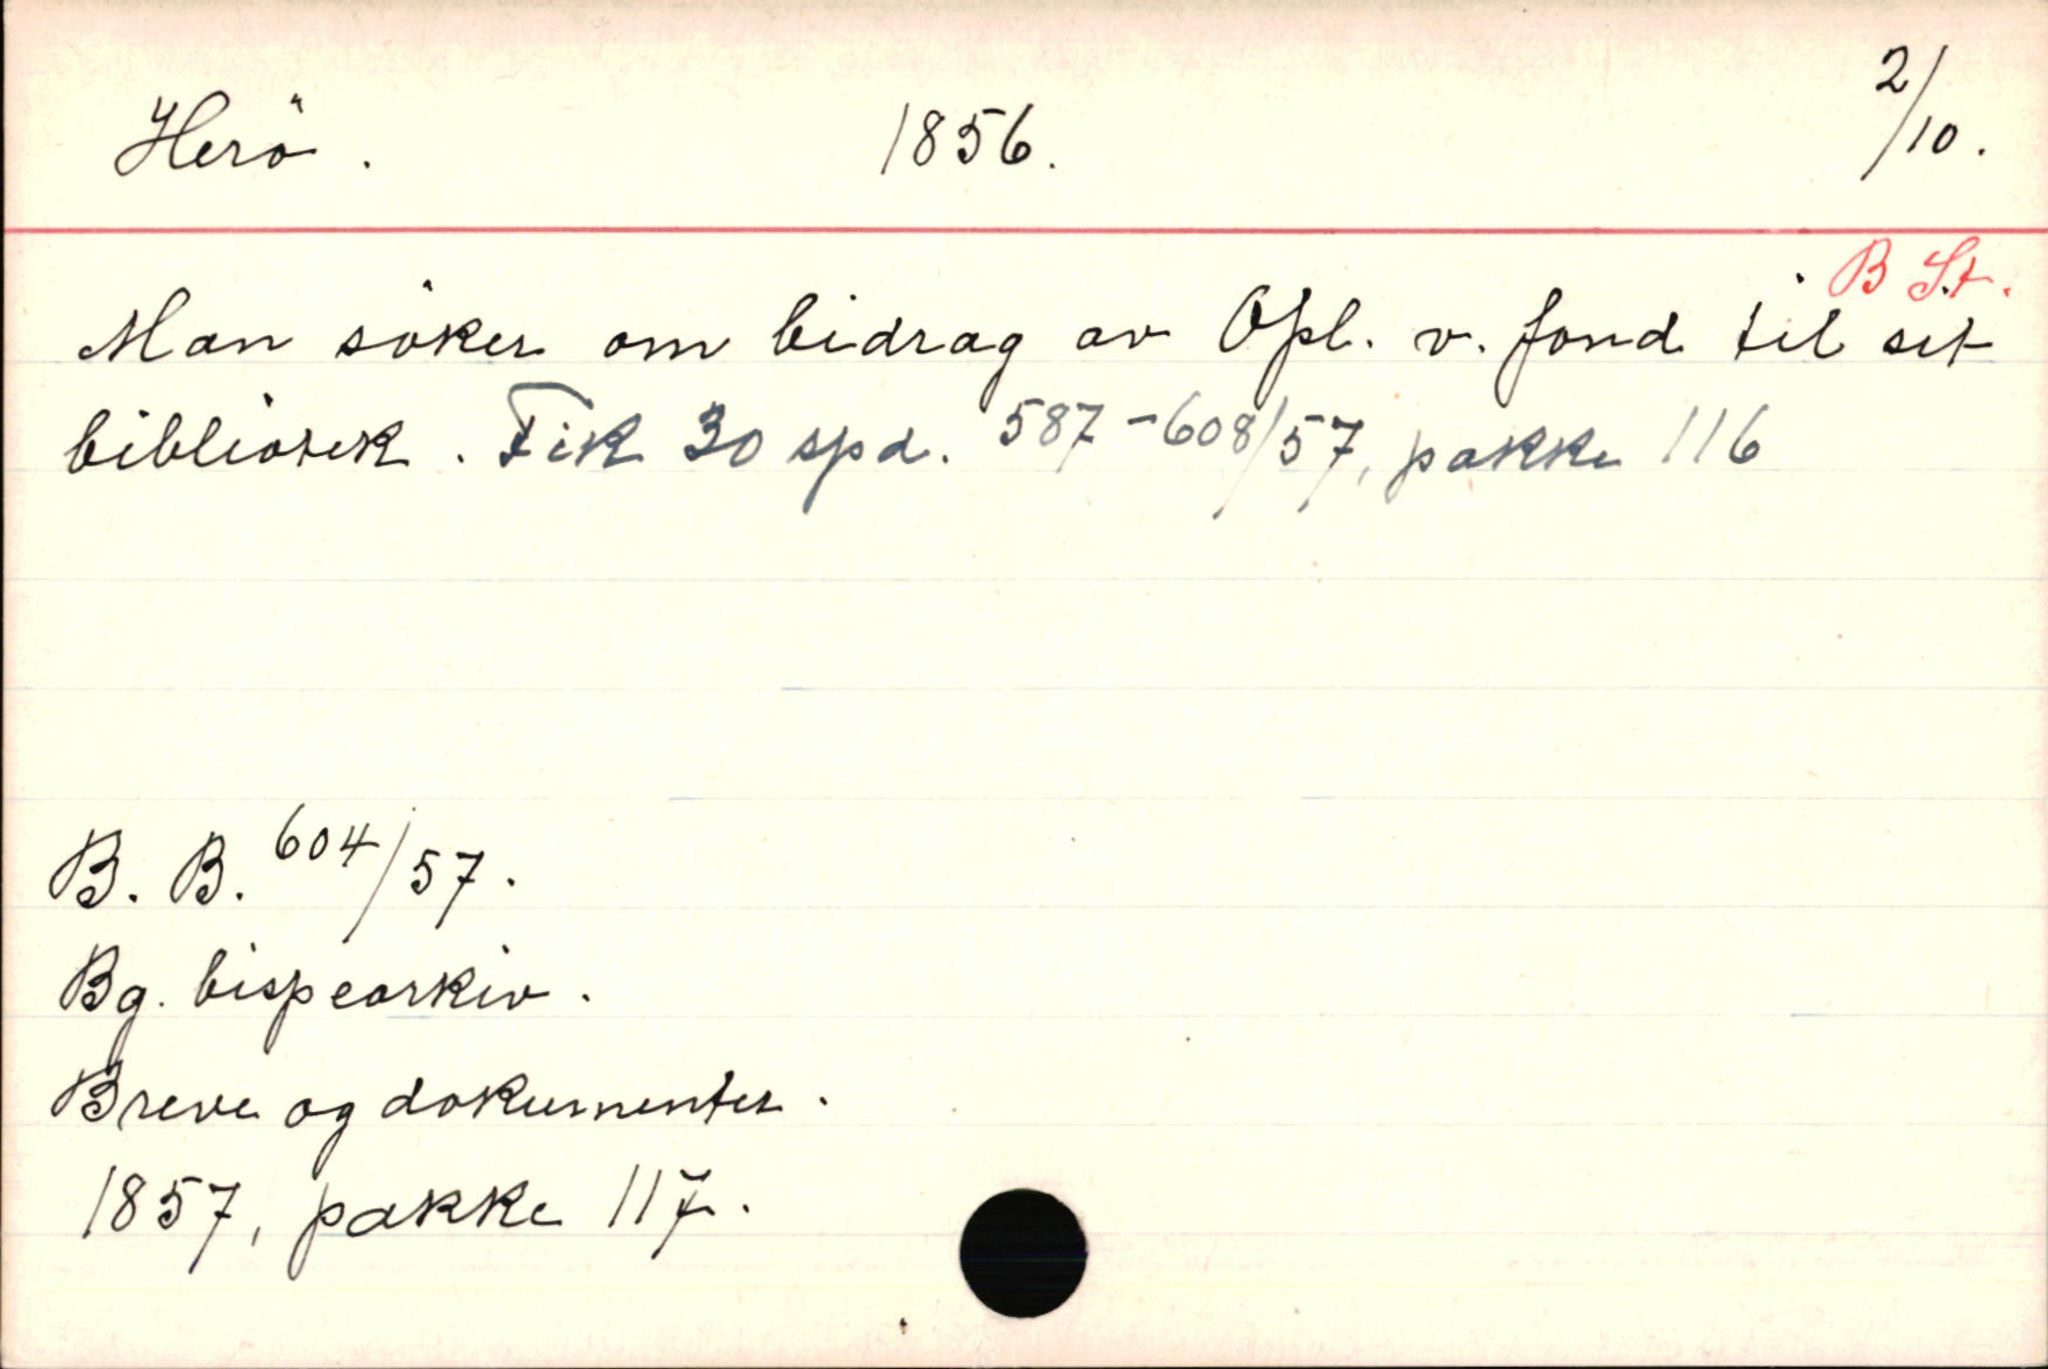 Herö. 1856. 2/10.
B St.
Man söker om bidrag av Opl. v. fond til sit
bibliotek. Fik 30 spd. 587-608/57, pakke 116
B. B. 604/57.
Bg. bispearkiv.
Breve og dokumenter.
1857, pakke 117.